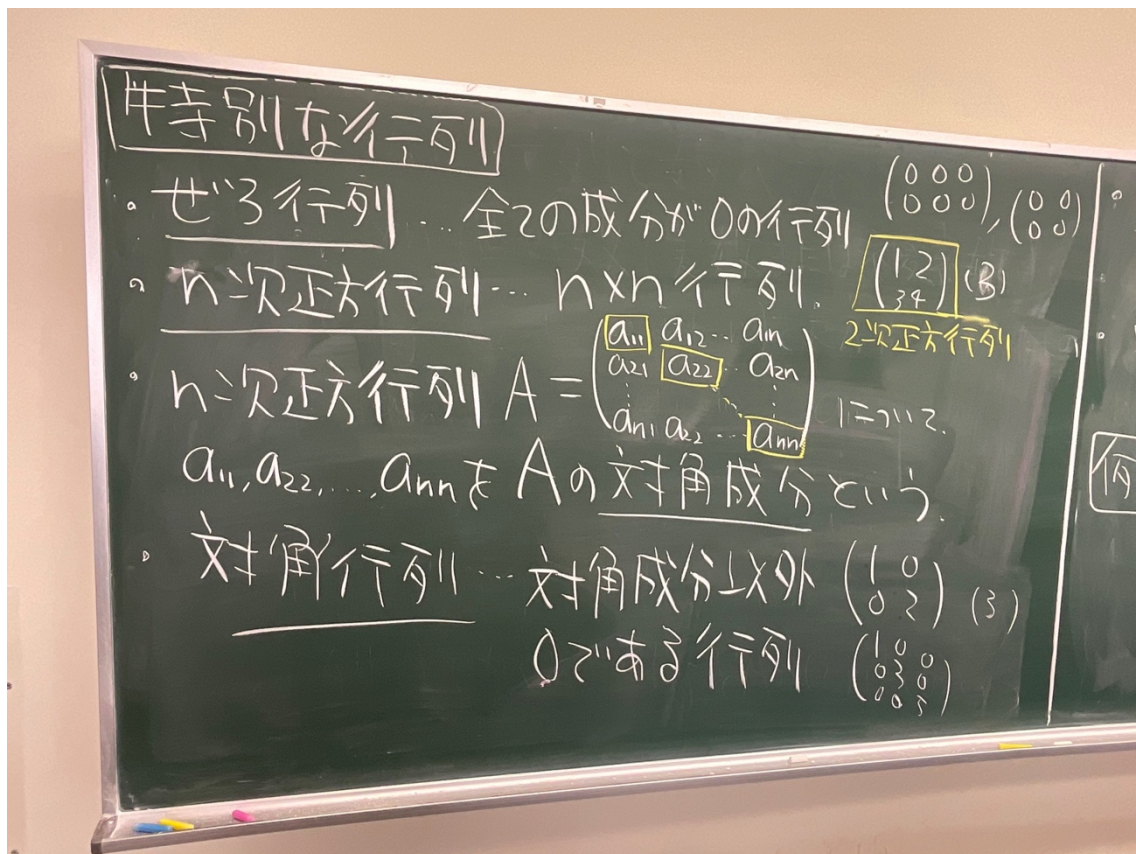 特別な行列
・ぜろ行列…全ての成分が0の行列 (0 0 0 / 0 0 0), (0 0 / 0 0)
・n次正方行列… n×n 行列. (1 2 / 3 4) (3)
2次正方行列
・n次正方行列 A = (a11 a12 … a1n / a21 a22 … a2n / ⋮ ⋮ / an1 a22 … ann) について.
a11, a22, …, ann を A の対角成分という.
・対角行列… 対角成分以外 (1 0 / 0 2) (3)
0である行列 (1 0 0 / 0 3 0 / 0 0 5)
何